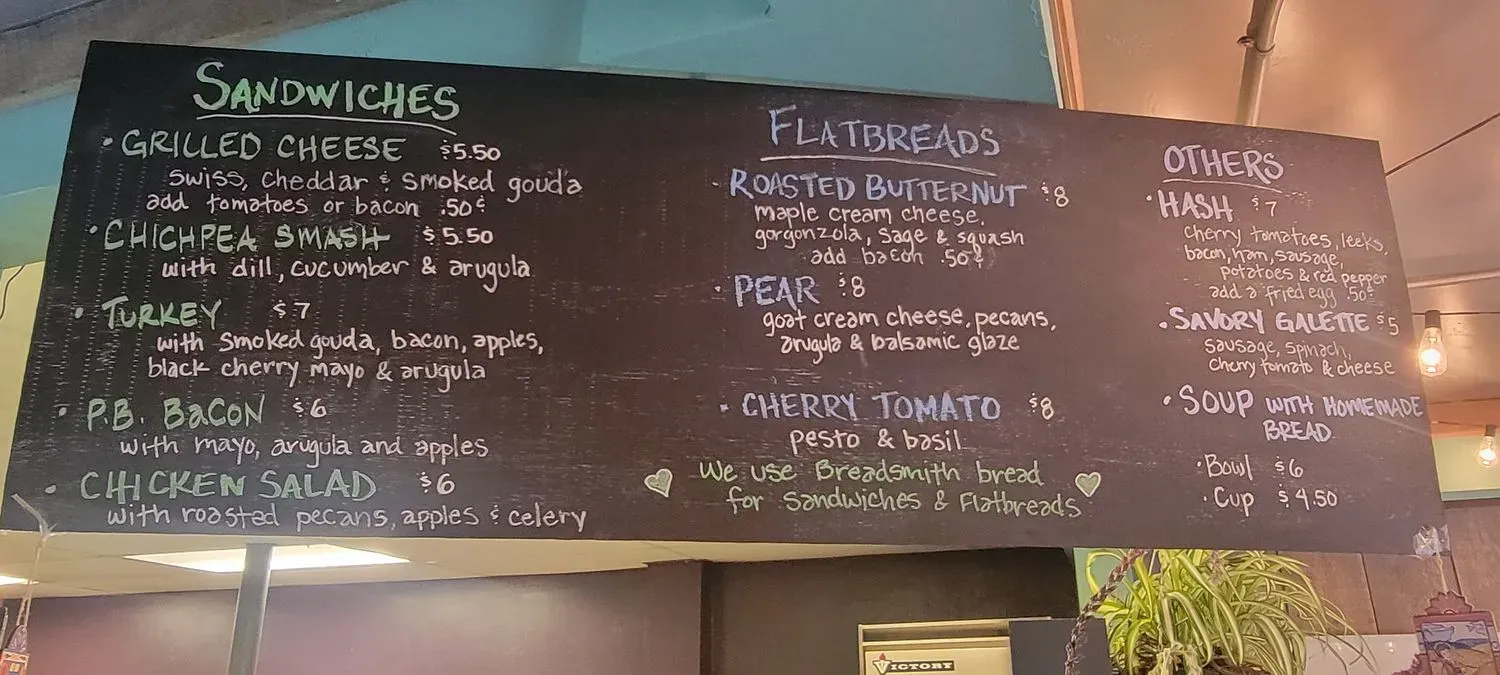 SANDWICHES
• GRILLED CHEESE $5.50
SWISS, Cheddar & Smoked gouda
add tomatoes or bacon .50¢
• CHICHPEA SMASH $5.50
with dill, cucumber & arugula
• TURKEY $7
with Smoked gouda, bacon, apples,
black cherry mayo & arugula
• P.B. BaCON $6
with mayo, arugula and apples
• CHICKEN SALAD $6
with roasted pecans, apples & celery
FLATBREADS
• ROASTED BUTTERNUT $8
maple cream cheese,
gorgonzola, sage & squash
add bacon .50¢
• PEAR $8
goat cream cheese, pecans,
arugula & balsamic glaze
• CHERRY TOMATO $8
pesto & basil
We use Breadsmith bread
for Sandwiches & Flatbreads
OTHERS
• HASH $7
cherry tomatoes, leeks,
bacon, ham, sausage,
potatoes & red pepper
add a fried egg .50¢
• SAVORY GALETTE $5
sausage, spinach,
cherry tomato & cheese
• SOUP WITH HOMEMADE
BREAD
• Bowl $6
• Cup $4.50
VICTORY